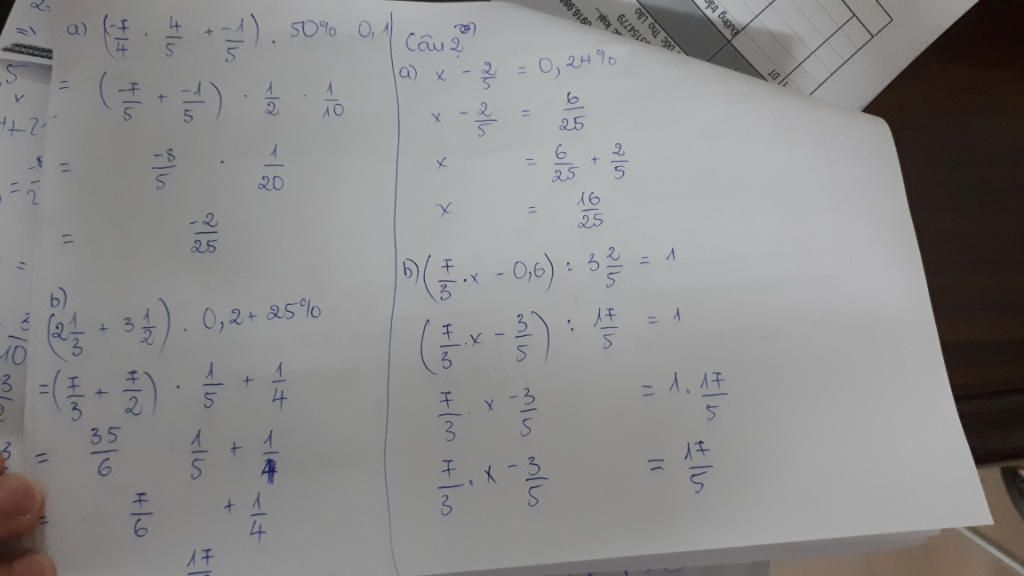 a) (-7/7 . 4/5 + -1/5) . 50% . 0,1
= (-7/5 + -1/5) . 1/2 . 1/10
= -8/5 . 1/20
= -2/25
b)
(2 1/3 + 3 1/2) . 0,2 + 25%
= (7/3 + 7/2) . 1/5 + 1/4
= 35/6 . 1/5 + 1/4
= 7/6 + 1/4
17
Câu 2
a) x - 2/5 = 0,24%
x - 2/5 = 6/25
x = 6/25 + 2/5
x = 16/25
b) (7/3 . x - 0,6) : 3 2/5 = 1
(7/3 . x - 3/5) : 17/5 = 1
7/3 . x - 3/5 = 1 . 17/5
7/3 . x - 3/5 = 17/5